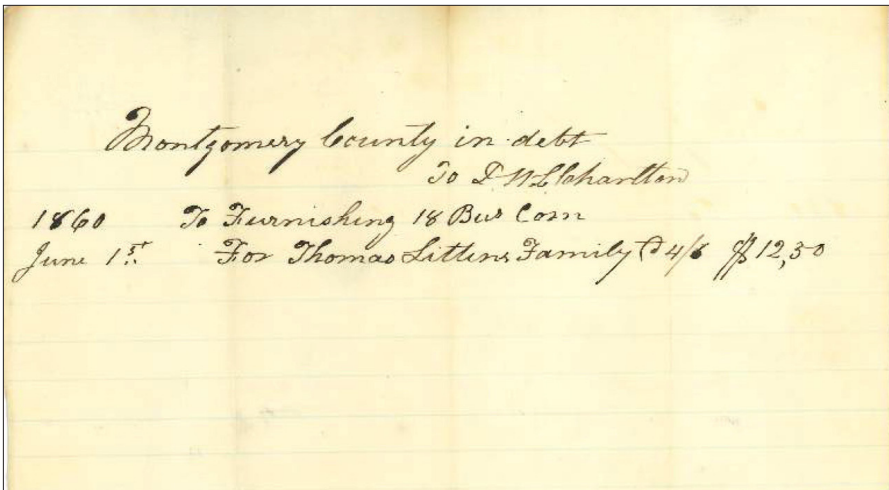 Montgomery County in debt
To Charlton
1860 To Furnishing 18 Bus Corn
June 1st For Thomas Littens Family @ 4/ $12,50